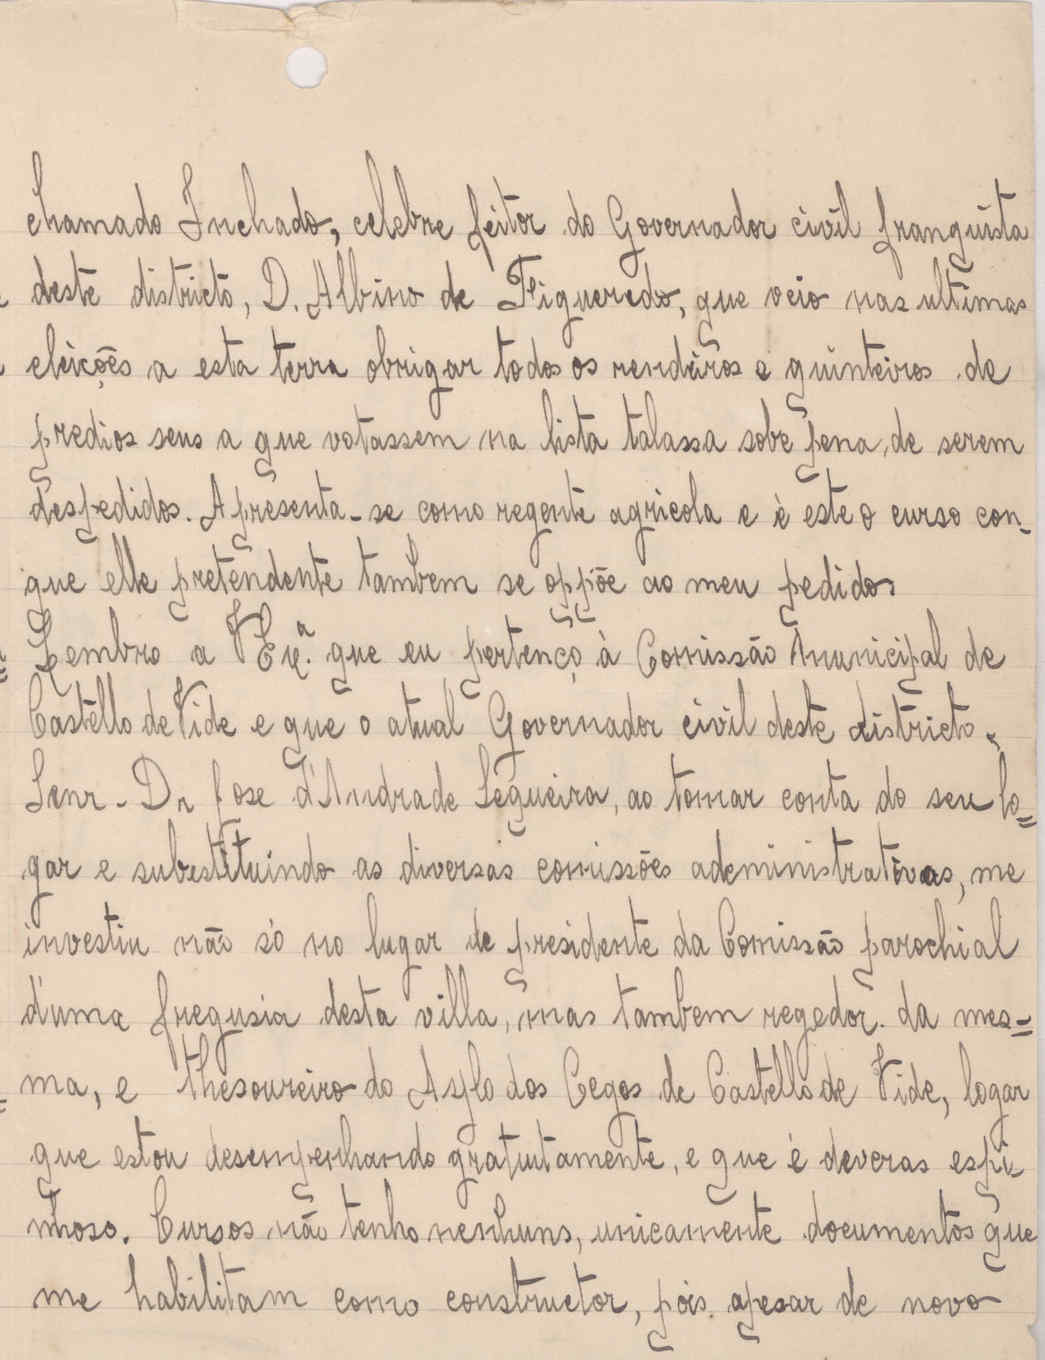 chamado Inchado, celebre feitor do Governador civil franquista
deste districto, D. Albino de Figueredo, que veio nas ultimas
eleições a esta terra obrigar todos os rendeiros e quinteiros de
predios seus a que votassem na lista talassa sobe pena, de serem
despedidos. Apresenta-se como regente agricola e é este o curso con-
que elle pretendente tambem se oppõe ao meu pedido.
Lembro a V Exª. que eu pertenço à Comissão Municipal de
Castello de Vide e que o atual Governador civil deste districto.
Senr. Dr Jose d'Andrade Sequeira, ao tomar conta do seu lo=
gar e substituindo as diversas comissões adeministrativas, me
investiu não só no lugar de presidente da Comissão parochial
d'uma fregusia desta villa, mas tambem regedor. da mes=
ma, e thesoureiro do Asylo dos Cegos de Castello de Vide, logar
que estou desempenhando gratuitamente, e que é deveras espi-
nhoso. Cursos não tenho nenhuns, unicamente documentos que
me habilitam como constructor, pois. apesar de novo